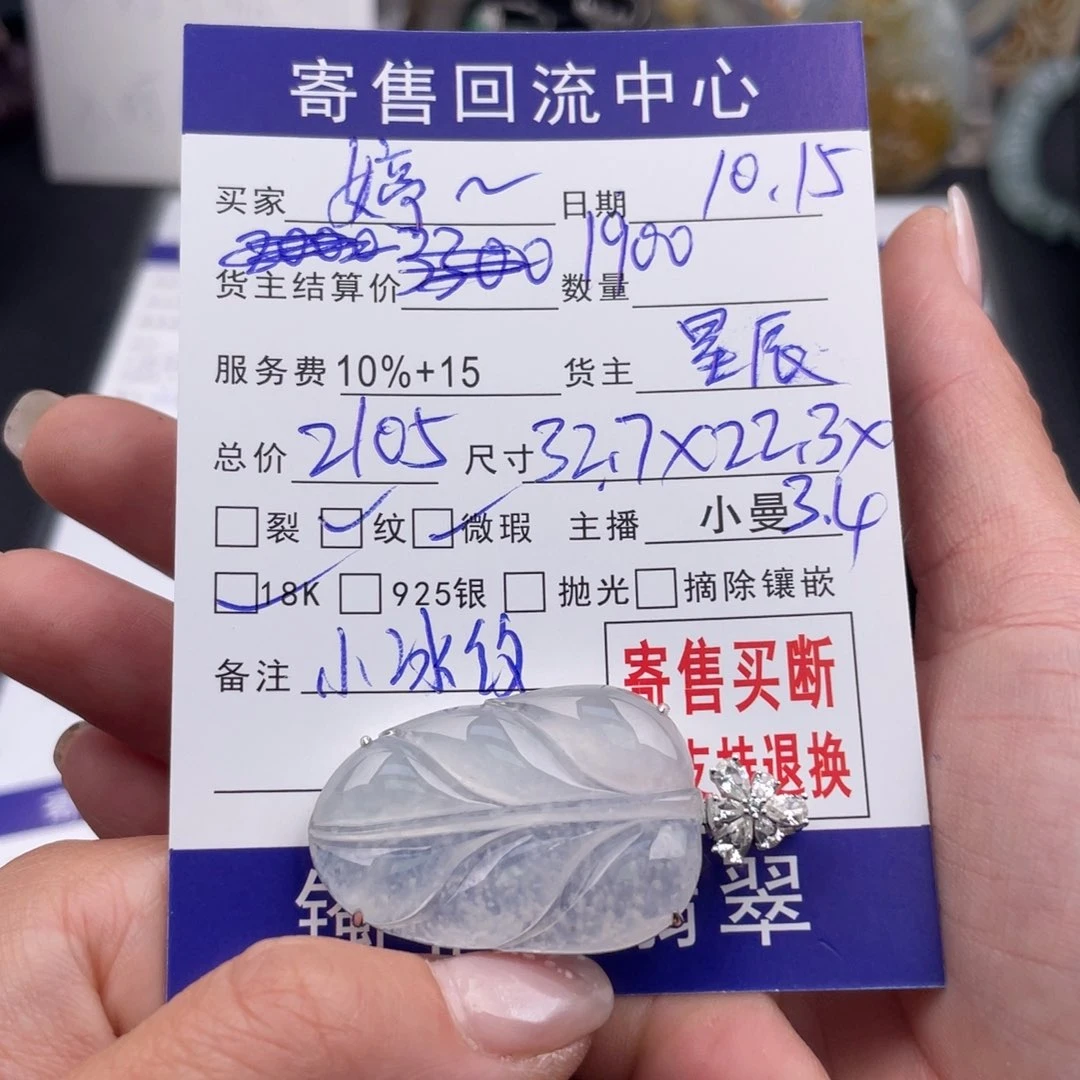 寄售回流中心
买家 婷~ 日期 10.15
1900
货主结算价 数量
服务费 10%+15 货主 星辰
总价 2105 尺寸 32.7×22.3×
3.4
裂 纹 微瑕 主播 小曼
18K 925银 抛光 摘除镶嵌
备注 小冰纹
寄售买断
支持退换
翡翠